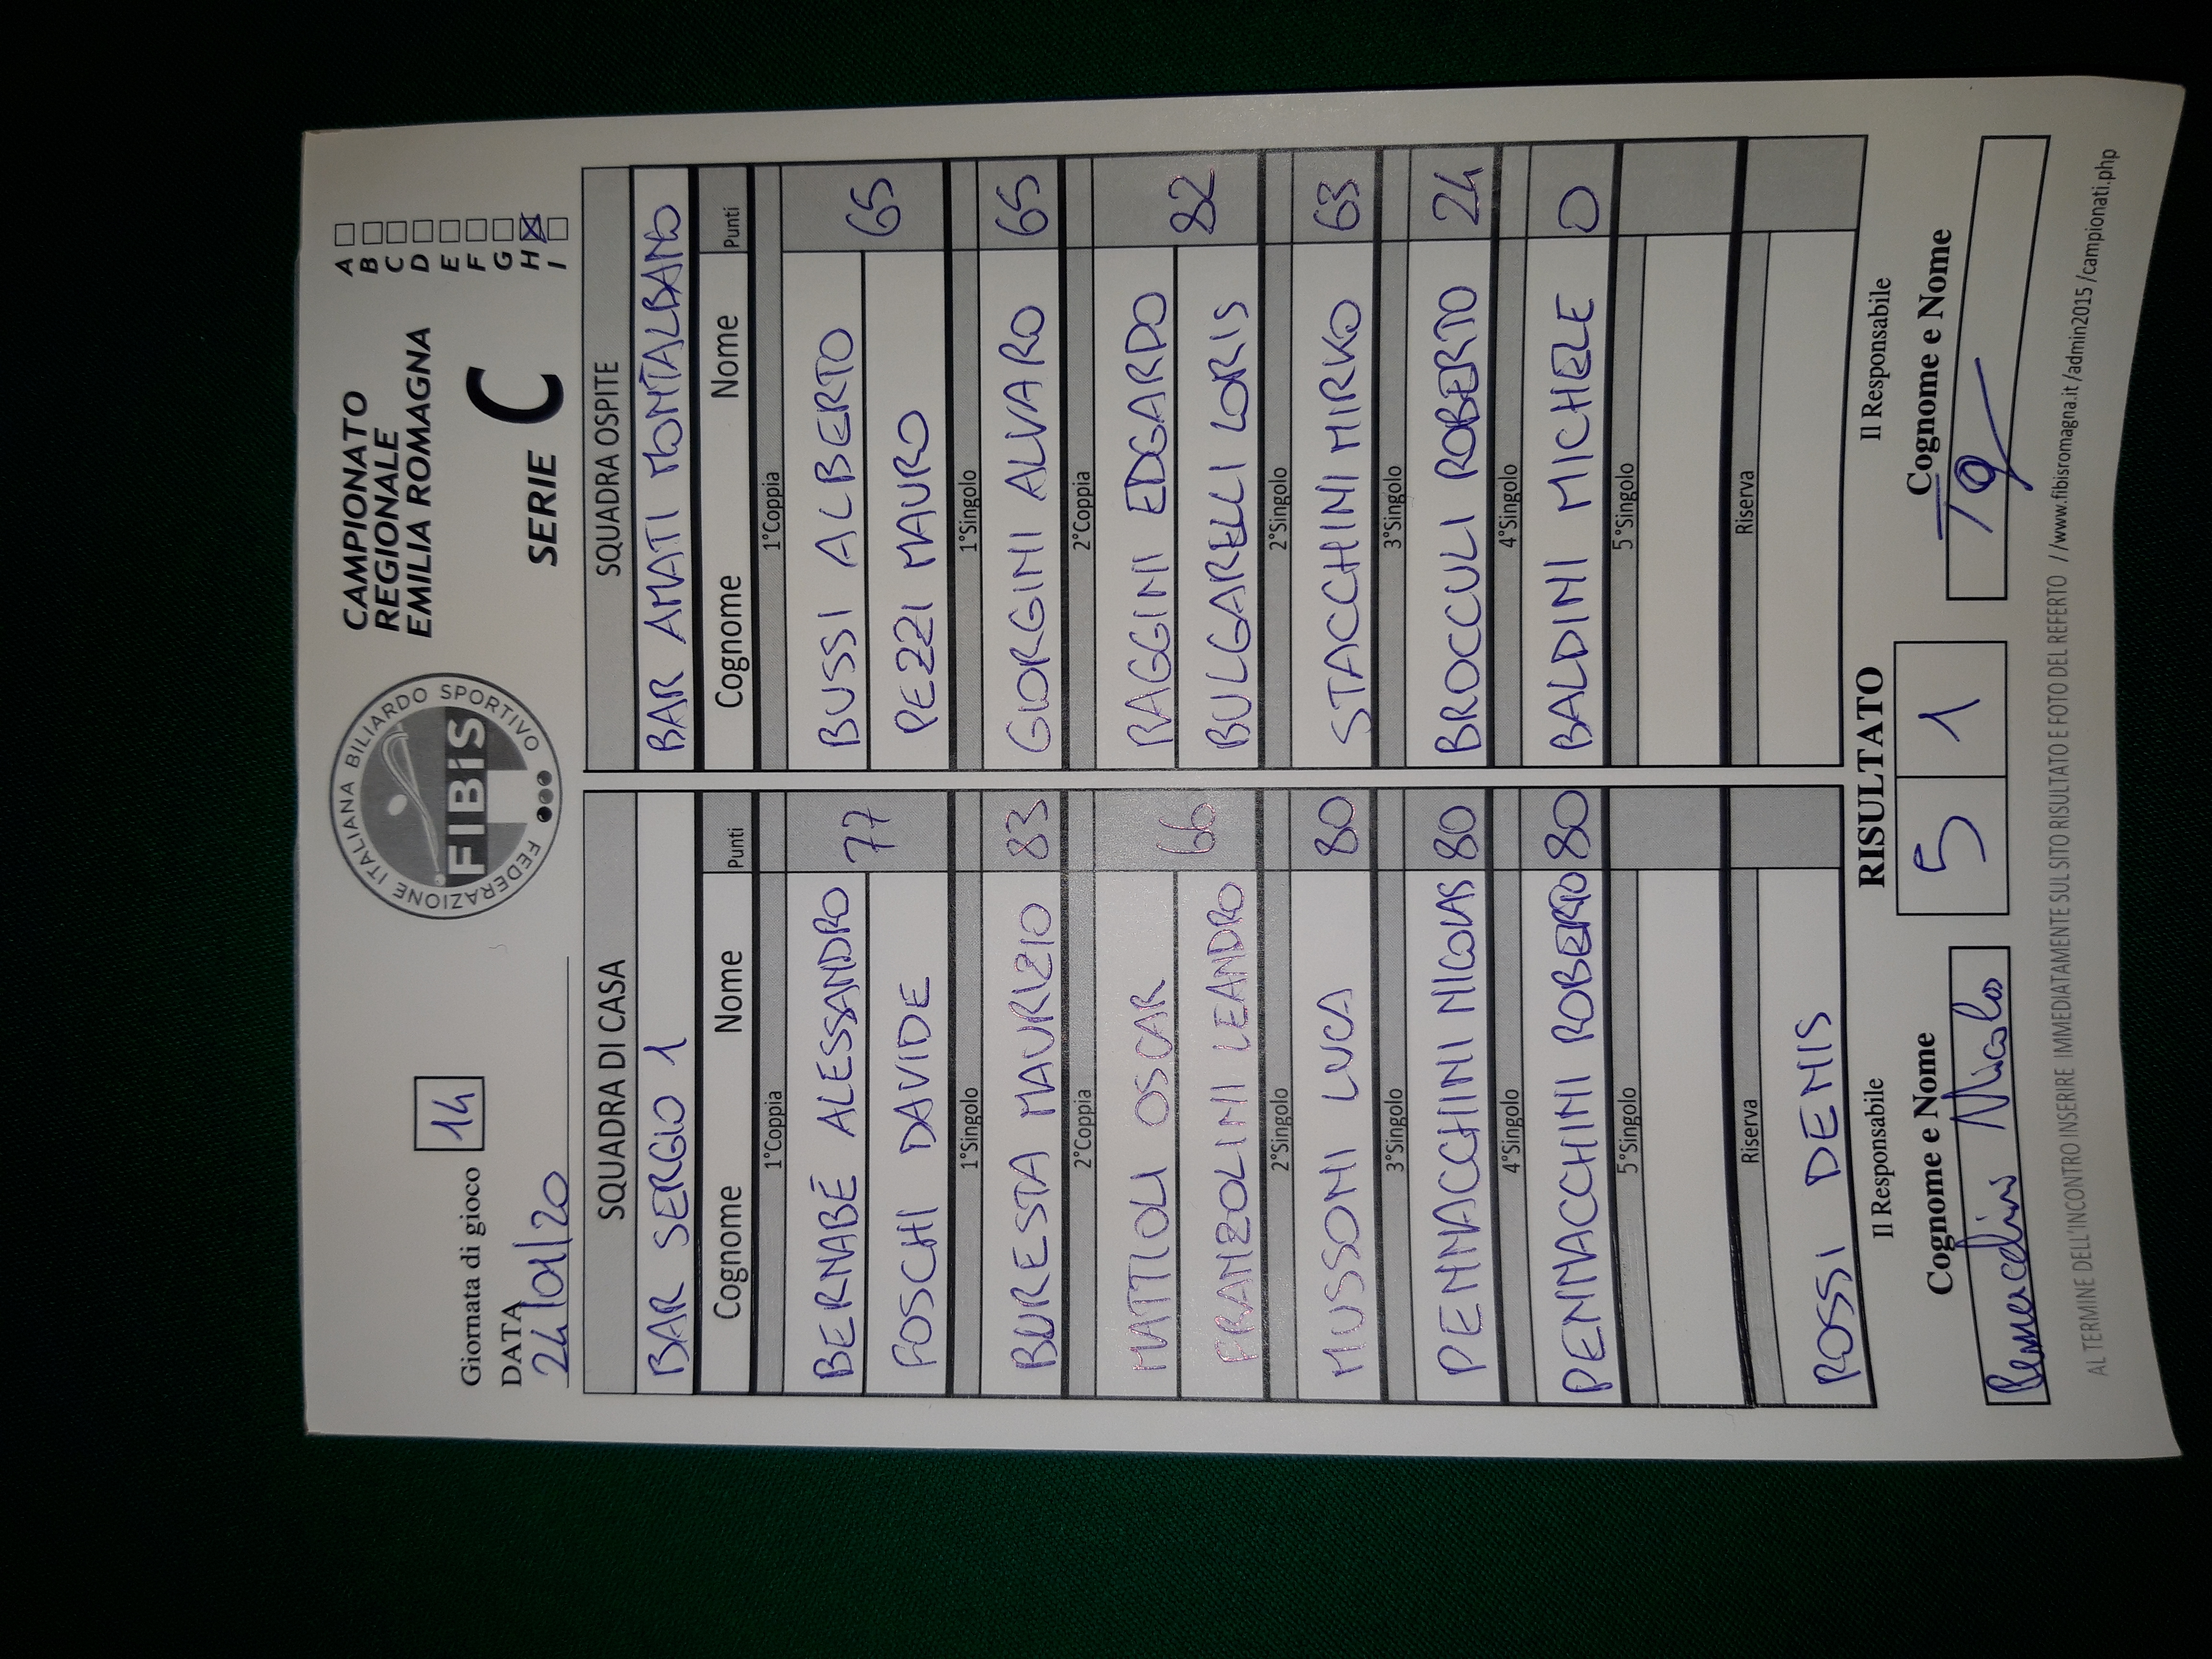 Giornata di gioco 14
DATA
24/01/20
FEDERAZIONE ITALIANA BILIARDO SPORTIVO
FIBiS
CAMPIONATO
REGIONALE
EMILIA ROMAGNA
SERIE C
A
B
C
D
E
F
G
H
I
SQUADRA DI CASA
BAR SERGIO 1
Cognome Nome Punti
1°Coppia
BERNABÉ ALESSANDRO
77
FOSCHI DAVIDE
1°Singolo
BURESTA MAURIZIO 83
2°Coppia
MATTIOLI OSCAR
66
FRANZOLINI LEANDRO
2°Singolo
MUSSONI LUCA 80
3°Singolo
PENNACCHINI NICOLAS 80
4°Singolo
PENNACCHINI ROBERTO 80
5°Singolo
Riserva
ROSSI DENIS
SQUADRA OSPITE
BAR AMATI MONTALBANO
Cognome Nome Punti
1°Coppia
BUSSI ALBERTO
65
PEZZI MAURO
1°Singolo
GIORGINI ALVARO 65
2°Coppia
RAGGINI EDGARDO
82
BULGARELLI LORIS
2°Singolo
STACCHINI MIRKO 63
3°Singolo
BROCCULI ROBERTO 24
4°Singolo
BALDINI MICHELE 0
5°Singolo
Riserva
Il Responsabile RISULTATO Il Responsabile
Cognome e Nome 5 1 Cognome e Nome
AL TERMINE DELL'INCONTRO INSERIRE IMMEDIATAMENTE SUL SITO RISULTATO E FOTO DEL REFERTO //www.fibisromagna.it/admin2015/campionati.php